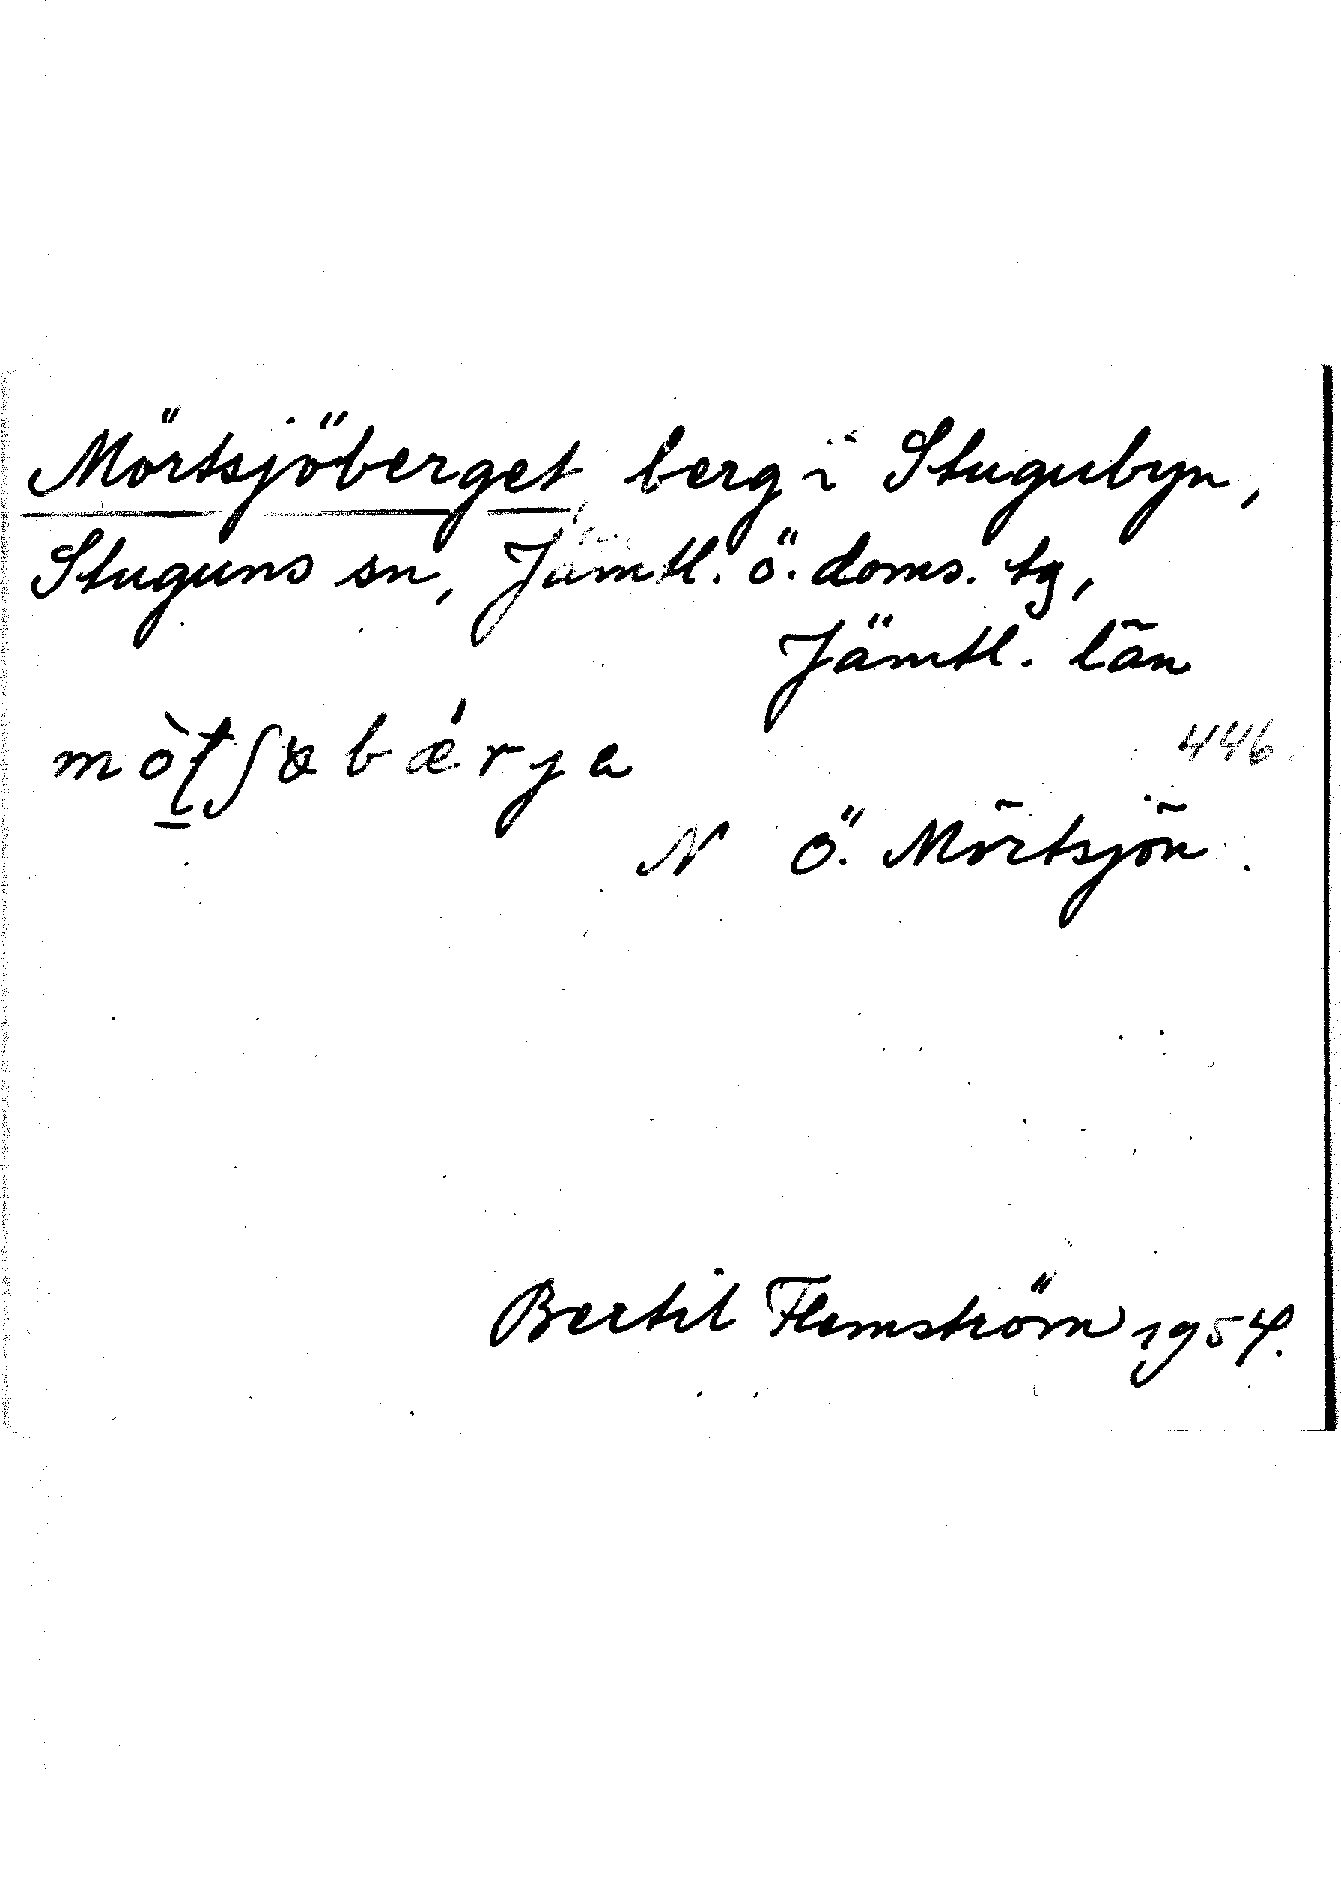 Mörtsjöberget berg i Stugubyn,
Stuguns sn, Jämtl. ö. doms. tg,
Jämtl. län
mò̱ʈʃəbǽrja
446
N Ö. Mörtsjön.
Bertil Flemström 1954.